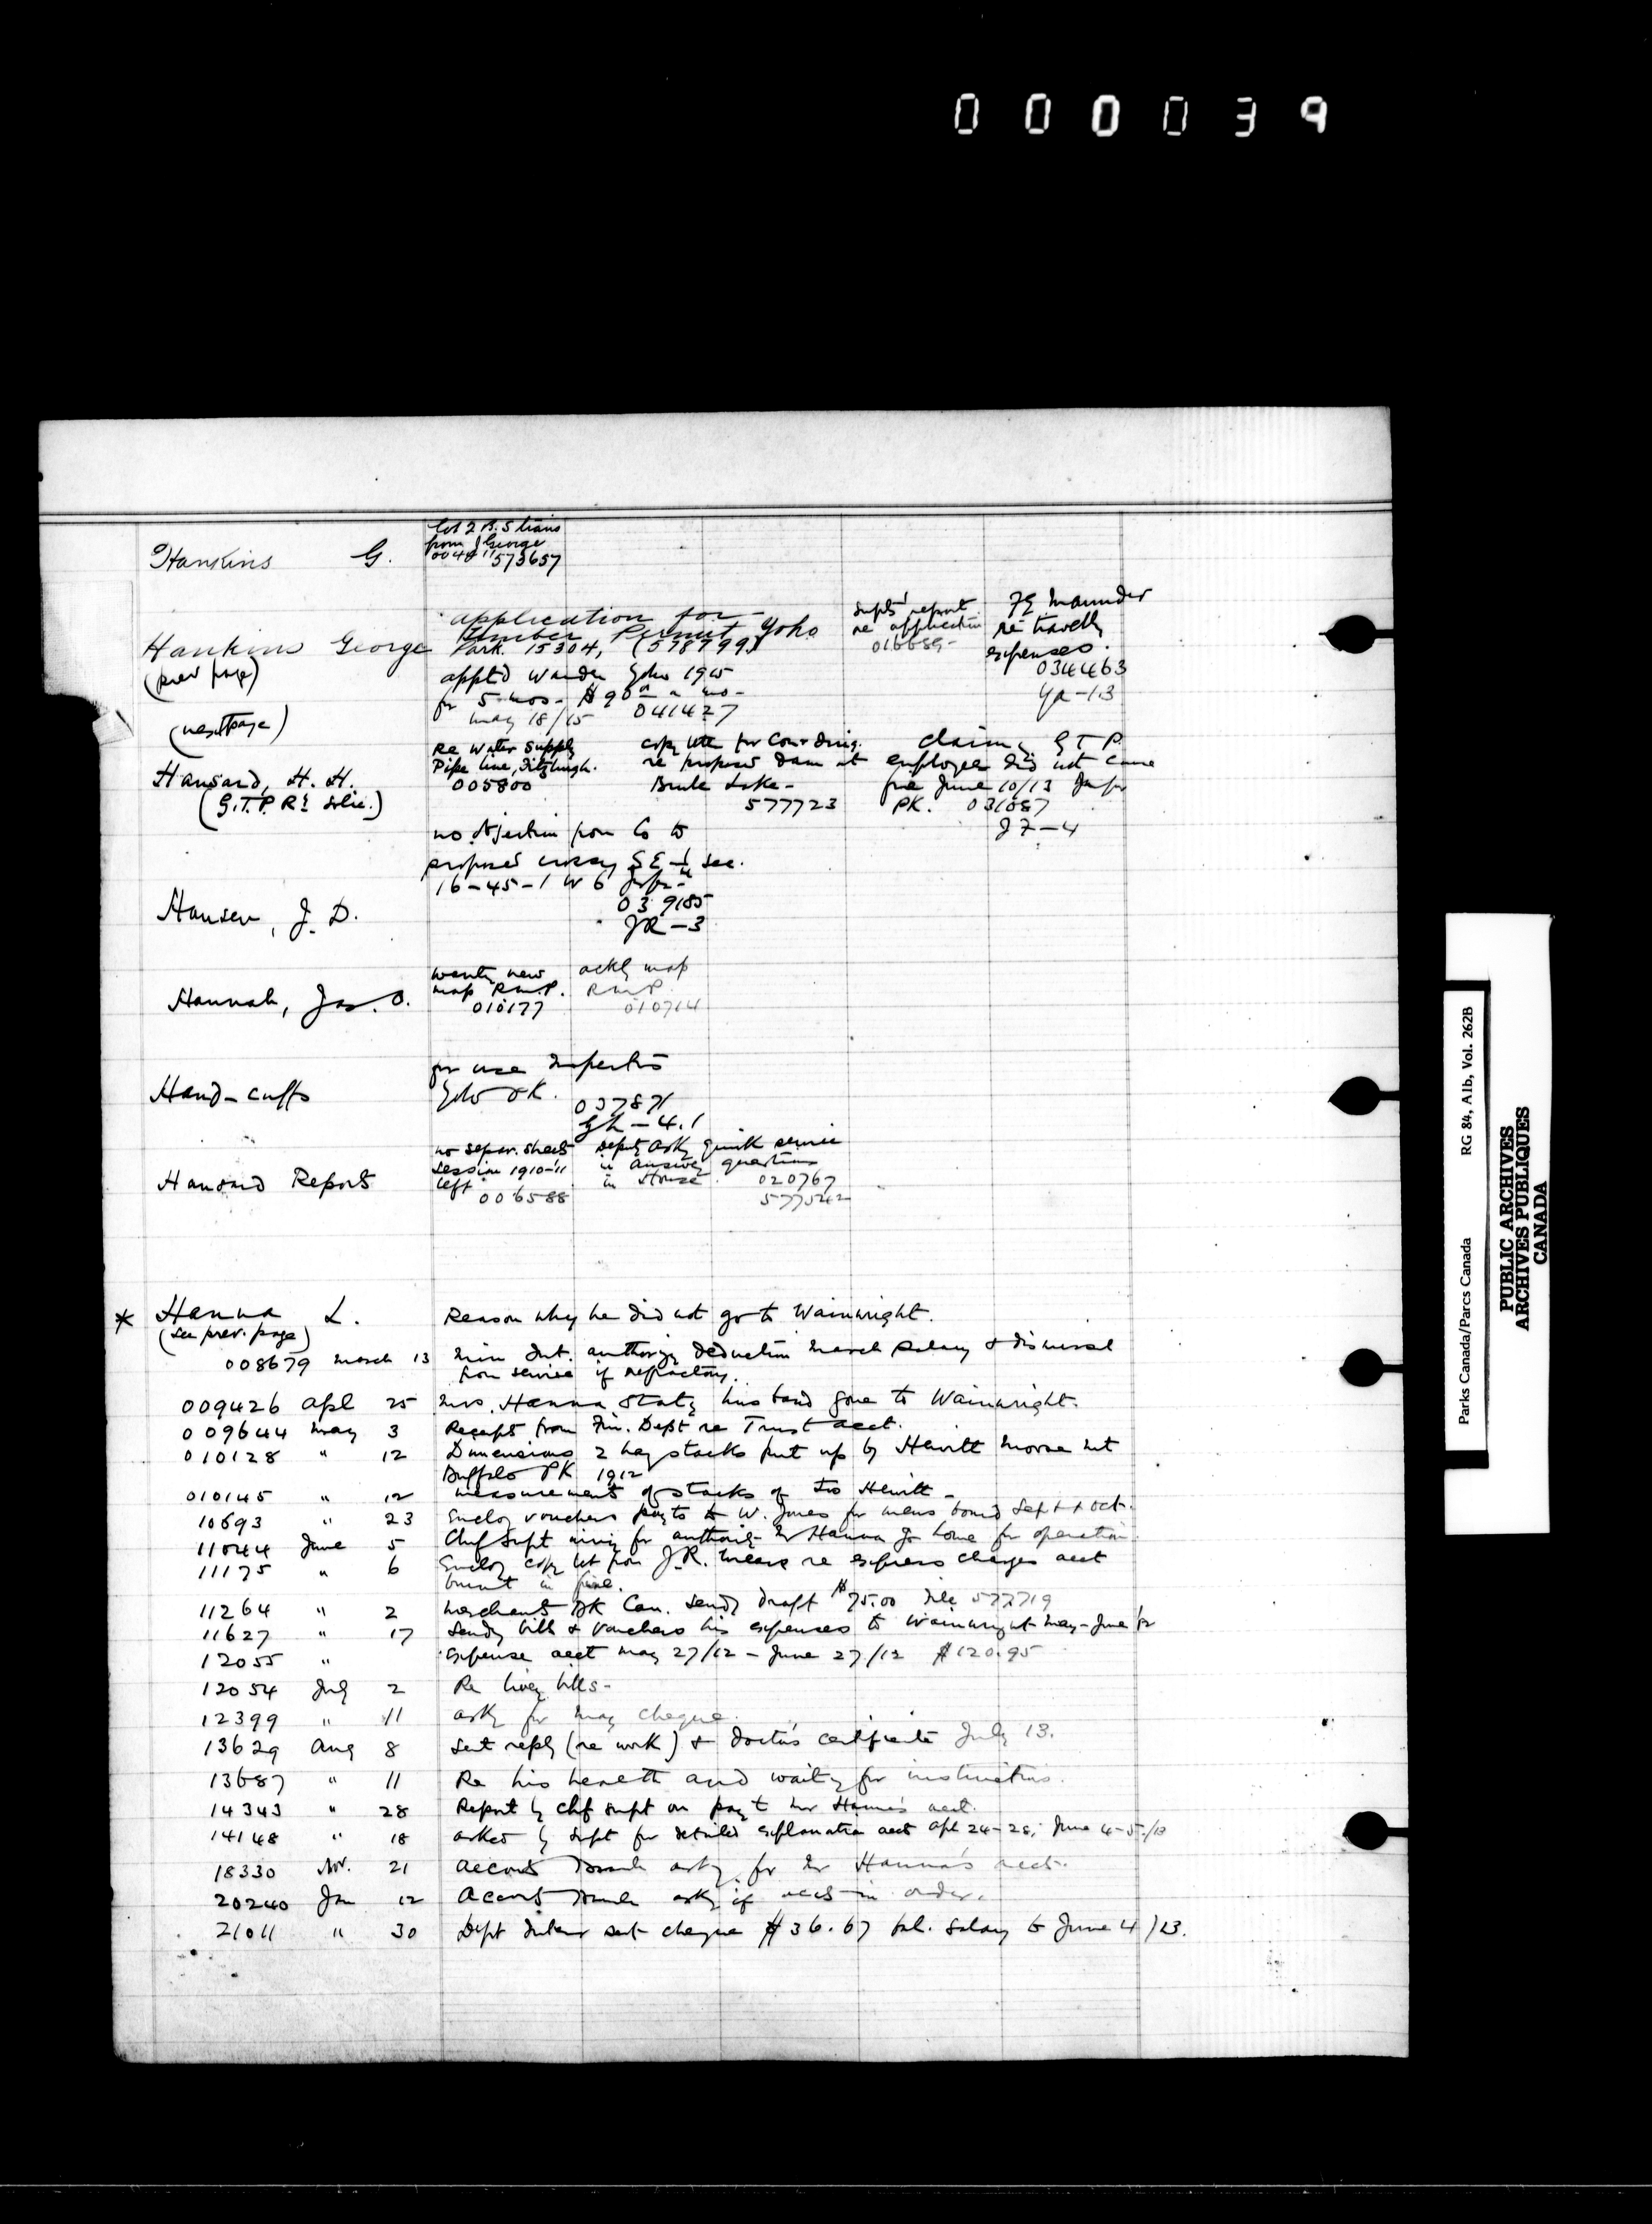 000039
Hankins G.
Lot 2 B. S trans
from George
573657
Hankins George
(prev page)
(next page)
application for
Timber Permit Yoho
Park. 15304, (578799)
supt's report
re application
016689-
Fg Maunder
re travellg
expenses.
034463
Ya-13
apptd Warden Yoho 1915
for 5 mos- $90 a mo-
may 18/15 041427
Hansard, H. H.
(G.T.P. Ry Solic.)
Re Water Supply
Pipe line, Fitzhugh.
005800
re proposed dam at
Brule Lake-
577723
claimg G T P
employee did not cause
fire June 10/13 Jasper
PK. 031087
JF-4
no objection from Co to
proposed crossg S E 1/4 sec.
16-45-1 W 6 Jasper
039185
JR-3
Hansen, J. D.
Hannah, Jas. O.
wantg new
map R.M.P.
010177
ackg map
RMP
010714
Hand-cuffs
for use Inspectors
Yoho PK.
037871
GL-4.1
Hansard Reports
no separ. sheets
session 1910-11
left
006588
Deputy askg quick service
in answg questions
in House. 020767
577542
* Hanna L.
(see prev. page)
Reason why he did not go to Wainwright.
008679 March 13 Min Int. authorizg deduction March salary & dismissal
from service if refractory.
009426 Apl 25 Mrs. Hanna Statg husband gone to Wainwright.
009644 May 3 Receipt from Fin. Dept re Trust acct.
010128 " 12 Dimensions 2 hay stacks put up by Hewitt Morse
Buffalo PK 1912
010145 " 12 measurement of stacks of Hewitt -
10693 " 23 Enclog vouchers payts to W. Jones for mens board Sept & Oct.
11044 June 5 Chf Supt wirg for authority Mr Hanna go home for operation.
11175 " 6 Enclog copy let from J.R. re express charges acct
burnt in fire.
11264 " 2 Merchants BK Can. sendg draft $75.00 file 577719
11627 " 17 Sendg bills & vouchers his expenses to Wainwright May-June/12
12055 " Expense acct May 27/12 - June 27/12 $120.95
12054 July 2 Re livery bills-
12399 " 11 askg for May cheque.
13629 Aug 8 Sent reply (re work) & doctor's certificate July 13.
13687 " 11 Re his health and waitg for instructions.
14343 " 28 Report by chf supt on payt Mr Hanna's acct.
14148 " 18 asked by supt for detailed explanation acct Apl 24-28, June 4-5/13
18330 Nov. 21 Accounts Branch askg for Mr Hanna's acct.
20240 Jan 12 Accounts Branch askg if accts in order.
21011 " 30 Dept Interior sent cheque $36.67 bal. salary to June 4/13.
Parks Canada/Parcs Canada RG 84, A1b, Vol. 262B
PUBLIC ARCHIVES
ARCHIVES PUBLIQUES
CANADA